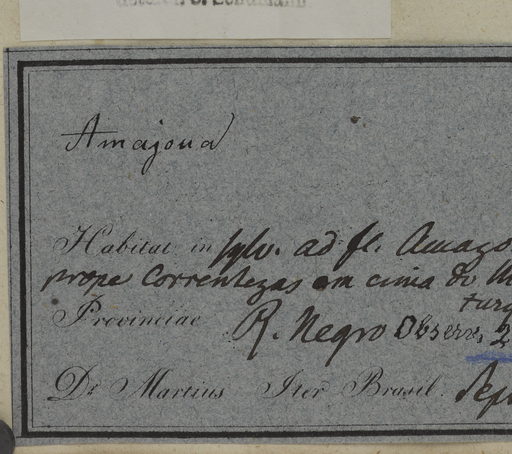 Determ. K. Schumann
Amajoua
Habitat in sylv. ad fl. Amazo
prope Correntezas em cima do M
Provinciae R. Negro Observ. 2
Dr Martius Iter Brasil. Sept